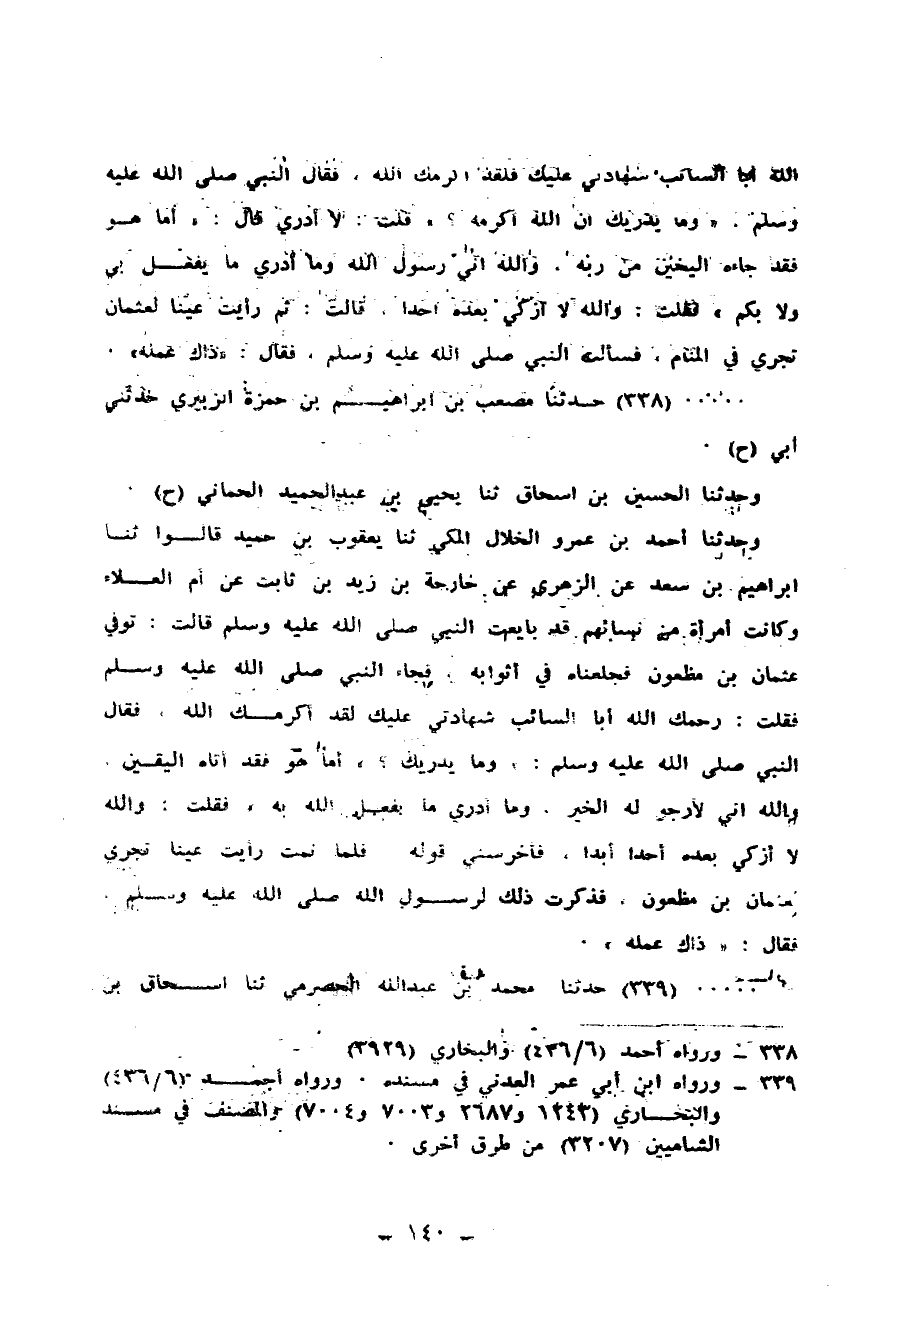 الله أبا السائب شهادتي عليك فلقد اكرمك الله ، فقال النبي صلى الله عليه
وسلم . « وما يدريك ان الله أكرمه ؟ » قلت : لا أدري قال : « أما هــو
فقد جاءه اليقين من ربه . والله اني رسول الله وما أدري ما يفعــل بي
ولا بكم » فقلت : والله لا أزكي بعده أحدا ، قالت : ثم رأيت عينا لعثمان
تجري في المنام ، فسألت النبي صلى الله عليه وسلم ، فقال : «ذاك عمله» ٠
٠٠٠٠٠ (٣٣٨) حــدثنا مصعب بن ابراهيــم بن حمزة الزبيري حدثني
أبي (ح) ٠
وحدثنا الحسين بن اسحاق ثنا يحيى بن عبدالحميد الحماني (ح) ٠
وحدثنا أحمد بن عمرو الخلال المكي ثنا يعقوب بن حميد قالــوا ثنــا
ابراهيم بن سعد عن الزهري عن خارجة بن زيد بن ثابت عن أم العــلاء
وكانت أمرأة من نسائهم قد بايعت النبي صلى الله عليه وسلم قالت : توفي
عثمان بن مظعون فجلعناه في أثوابه ، فجاء النبي صلى الله عليه وســلم
فقلت : رحمك الله أبا السائب شهادتي عليك لقد أكرمــك الله ، فقال
النبي صلى الله عليه وسلم : « وما يدريك ؟ ، أما هو فقد أتاه اليقين .
والله اني لأرجو له الخير . وما أدري ما يفعــل الله به » فقلت : والله
لا أزكي بعده أحدا أبدا ، فأخرسني قوله فلما نمت رأيت عينا تجري
لعثمان بن مظعون ، فذكرت ذلك لرســول الله صلى الله عليه وســلم .
فقال : « ذاك عمله » ٠
٠٠٠٠٠ (٣٣٩) حدثنا محمد بن عبدالله الحضرمي ثنا اســحاق بن
٣٣٨ ــ ورواه أحمد (٤٣٦/٦) والبخاري (٣٩٢٩)
٣٣٩ ــ ورواه ابن أبي عمر العدني في مسنده ٠ ورواه أحمــد (٤٣٦/٦)
والبخــاري (١٢٤٣ و٢٦٨٧ و٧٠٠٣ و٧٠٠٤) والمصنف في مســند
الشاميين (٣٢٠٧) من طرق أخرى ٠
ــ ١٤٠ ــ